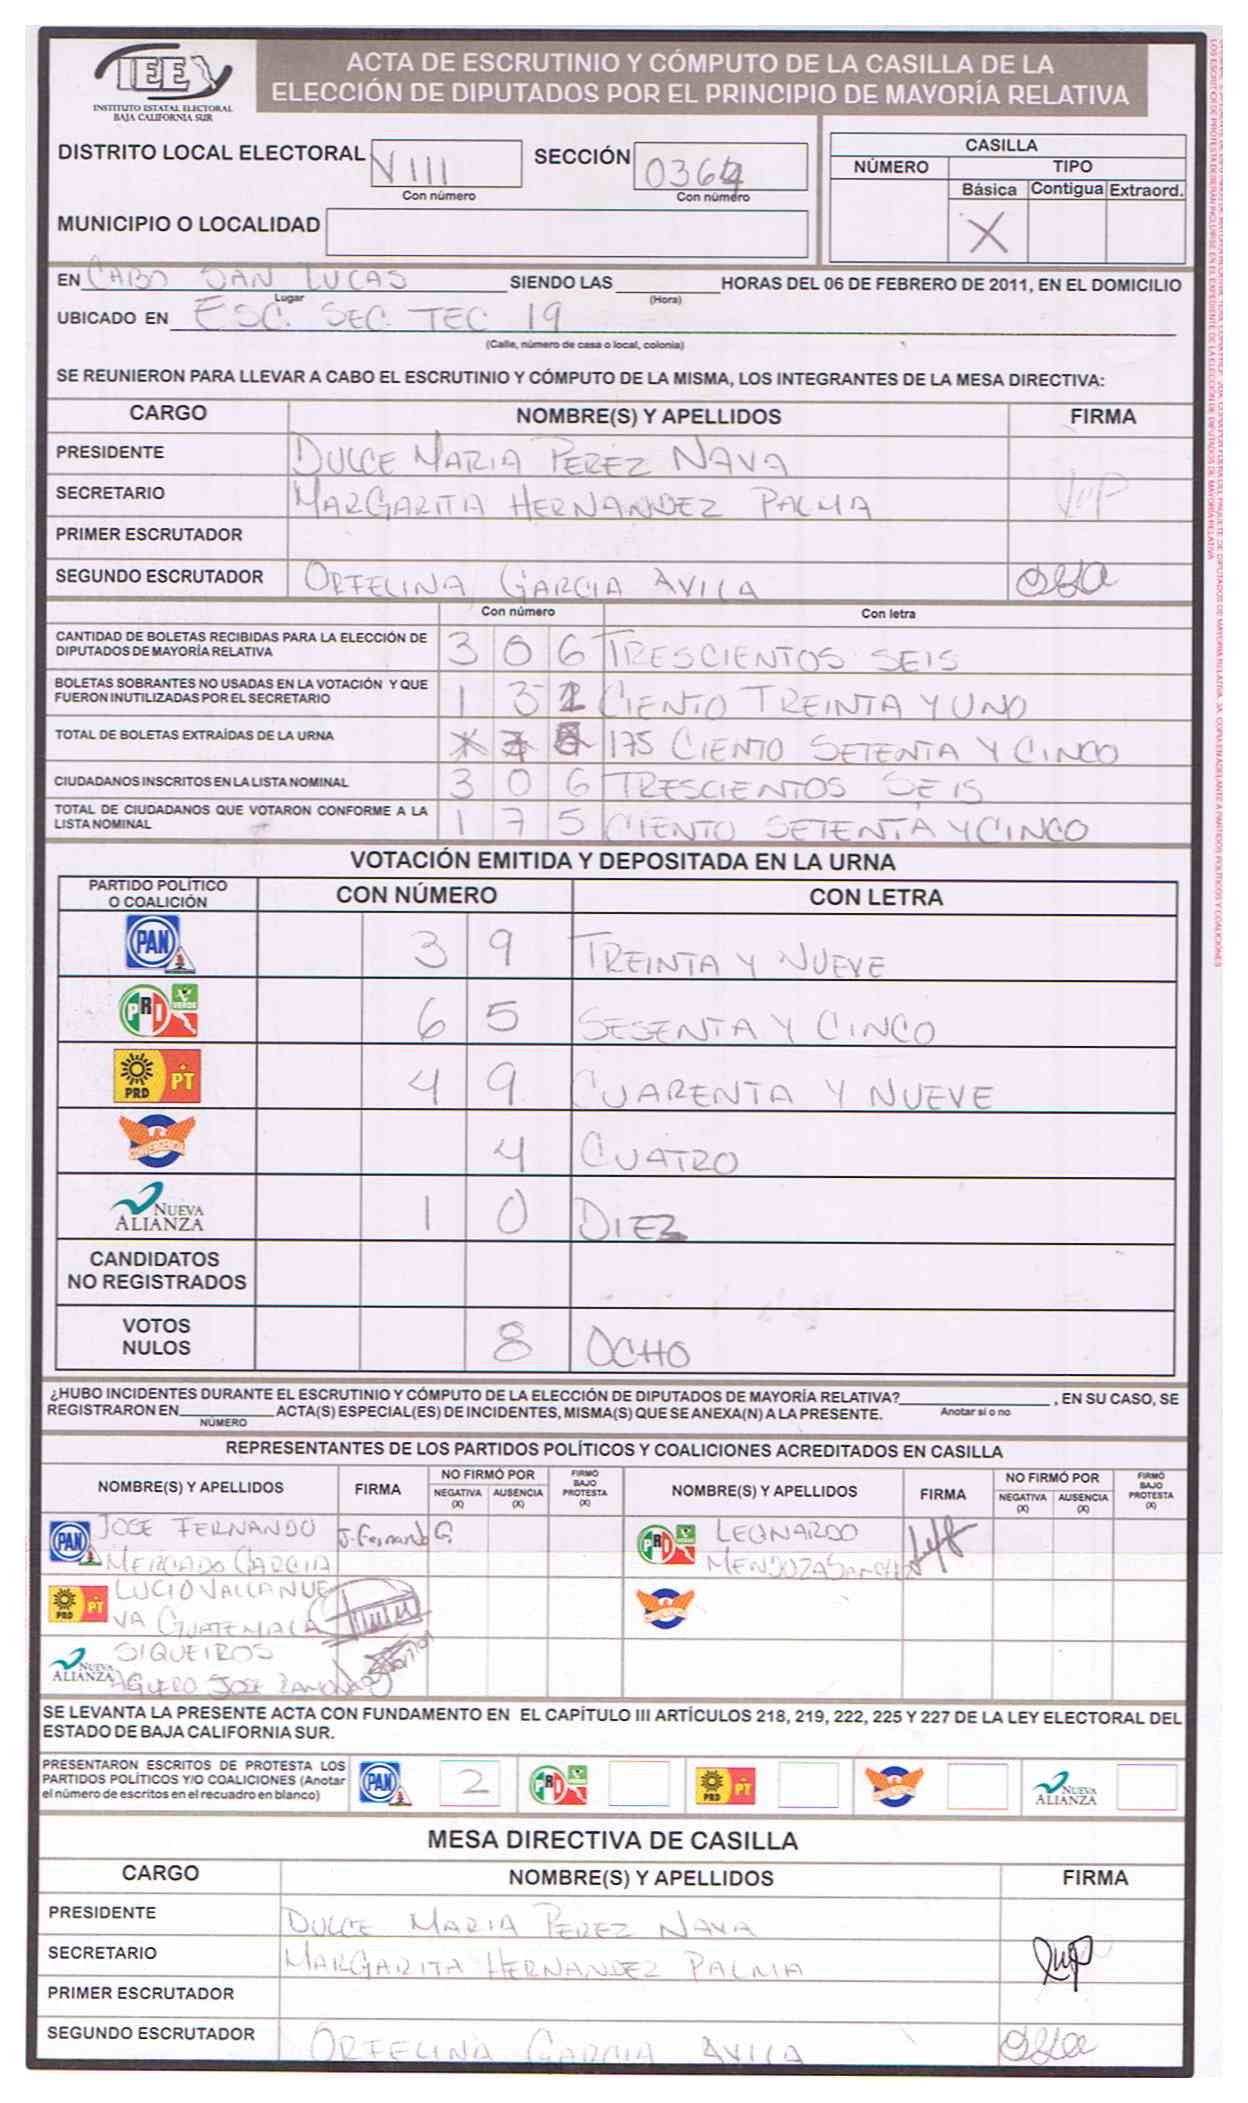 IEE
INSTITUTO ESTATAL ELECTORAL
BAJA CALIFORNIA SUR
ACTA DE ESCRUTINIO Y CÓMPUTO DE LA CASILLA DE LA
ELECCIÓN DE DIPUTADOS POR EL PRINCIPIO DE MAYORÍA RELATIVA
DISTRITO LOCAL ELECTORAL VIII SECCIÓN 0364
Con número Con número
MUNICIPIO O LOCALIDAD
CASILLA
NÚMERO TIPO
Básica Contigua Extraord.
X
EN CABO SAN LUCAS SIENDO LAS HORAS DEL 06 DE FEBRERO DE 2011, EN EL DOMICILIO
Lugar (Hora)
UBICADO EN ESC. SEC. TEC 19
(Calle, número de casa o local, colonia)
SE REUNIERON PARA LLEVAR A CABO EL ESCRUTINIO Y CÓMPUTO DE LA MISMA, LOS INTEGRANTES DE LA MESA DIRECTIVA:
CARGO NOMBRE(S) Y APELLIDOS FIRMA
PRESIDENTE DULCE MARIA PEREZ NAVA
SECRETARIO MARGARITA HERNANDEZ PALMA
PRIMER ESCRUTADOR
SEGUNDO ESCRUTADOR ORFELINA GARCIA AVILA
Con número Con letra
CANTIDAD DE BOLETAS RECIBIDAS PARA LA ELECCIÓN DE
DIPUTADOS DE MAYORÍA RELATIVA 3 0 6 TRESCIENTOS SEIS
BOLETAS SOBRANTES NO USADAS EN LA VOTACIÓN Y QUE
FUERON INUTILIZADAS POR EL SECRETARIO 1 3 1 CIENTO TREINTA Y UNO
TOTAL DE BOLETAS EXTRAÍDAS DE LA URNA 175 CIENTO SETENTA Y CINCO
CIUDADANOS INSCRITOS EN LA LISTA NOMINAL 3 0 6 TRESCIENTOS SEIS
TOTAL DE CIUDADANOS QUE VOTARON CONFORME A LA
LISTA NOMINAL 1 7 5 CIENTO SETENTA Y CINCO
VOTACIÓN EMITIDA Y DEPOSITADA EN LA URNA
PARTIDO POLÍTICO
O COALICIÓN CON NÚMERO CON LETRA
PAN 3 9 TREINTA Y NUEVE
PRI VERDE 6 5 SESENTA Y CINCO
PRD PT 4 9 CUARENTA Y NUEVE
CONVERGENCIA 4 CUATRO
NUEVA ALIANZA 1 0 DIEZ
CANDIDATOS
NO REGISTRADOS
VOTOS
NULOS 8 OCHO
¿HUBO INCIDENTES DURANTE EL ESCRUTINIO Y CÓMPUTO DE LA ELECCIÓN DE DIPUTADOS DE MAYORÍA RELATIVA? , EN SU CASO, SE
REGISTRARON EN ACTA(S) ESPECIAL(ES) DE INCIDENTES, MISMA(S) QUE SE ANEXA(N) A LA PRESENTE. Anotar sí o no
NÚMERO
REPRESENTANTES DE LOS PARTIDOS POLÍTICOS Y COALICIONES ACREDITADOS EN CASILLA
NOMBRE(S) Y APELLIDOS FIRMA NO FIRMÓ POR NEGATIVA (X) AUSENCIA (X) FIRMÓ BAJO PROTESTA (X) NOMBRE(S) Y APELLIDOS FIRMA NO FIRMÓ POR NEGATIVA (X) AUSENCIA (X) FIRMÓ BAJO PROTESTA (X)
PAN JOSE FERNANDO J. Fernando G. PRI LEONARDO
MERCADO GARCIA MENDOZA
PRD PT LUCIO VILLANUE
VA GUATEMALA
NUEVA ALIANZA SIQUEIROS
AGUERO JOSE RAMON
SE LEVANTA LA PRESENTE ACTA CON FUNDAMENTO EN EL CAPÍTULO III ARTÍCULOS 218, 219, 222, 225 Y 227 DE LA LEY ELECTORAL DEL
ESTADO DE BAJA CALIFORNIA SUR.
PRESENTARON ESCRITOS DE PROTESTA LOS
PARTIDOS POLÍTICOS Y/O COALICIONES (Anotar
el número de escritos en el recuadro en blanco) PAN 2 PRI PRD PT NUEVA ALIANZA
MESA DIRECTIVA DE CASILLA
CARGO NOMBRE(S) Y APELLIDOS FIRMA
PRESIDENTE DULCE MARIA PEREZ NAVA
SECRETARIO MARGARITA HERNANDEZ PALMA
PRIMER ESCRUTADOR
SEGUNDO ESCRUTADOR ORFELINA GARCIA AVILA